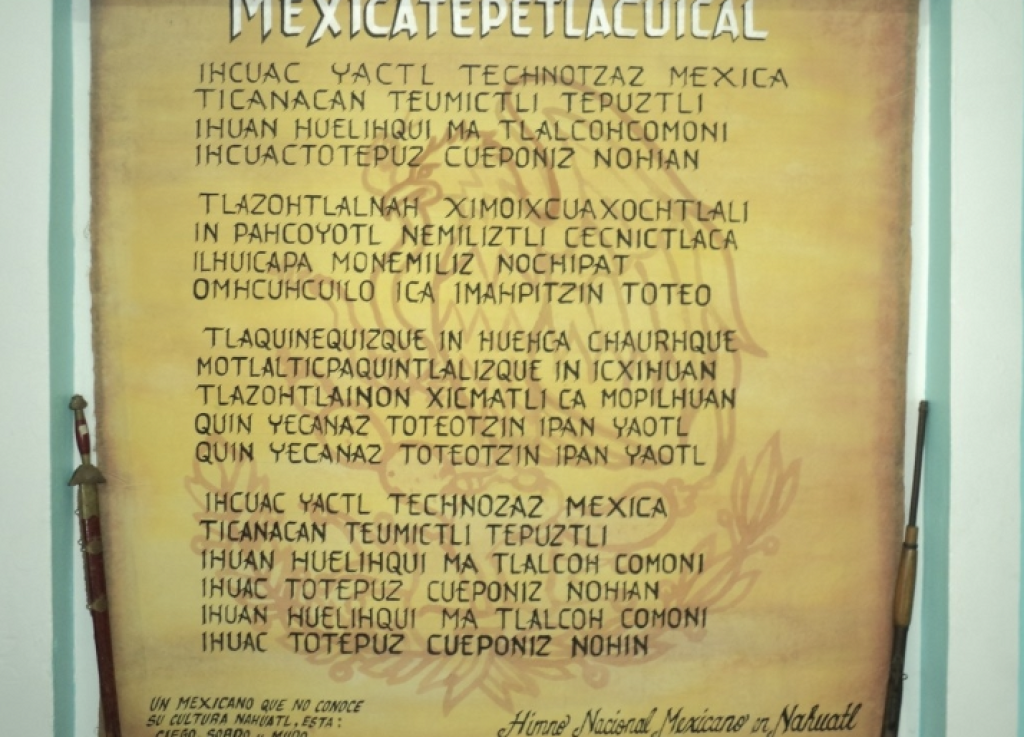 MEXICATEPETLACUICAL
IHCUAC YACTL TECHNOTZAZ MEXICA
TICANACAN TEUMICTLI TEPUZTLI
IHUAN HUELIHQUI MA TLALCOHCOMONI
IHCUACTOTEPUZ CUEPONIZ NOHIAN
TLAZOHTLALNAH XIMOIXCUAXOCHTLALI
IN PAHCOYOTL NEMILIZTLI CECNICTLACA
ILHUICAPA MONEMILIZ NOCHIPAT
OMHCUHCUILO ICA IMAHPITZIN TOTEO
TLAQUINEQUIZQUE IN HUEHCA CHAURHQUE
MOTLALTICPAQUINTLALIZQUE IN ICXIHUAN
TLAZOHTLAINON XICMATLI CA MOPILHUAN
QUIN YECANAZ TOTEOTZIN IPAN YAOTL
QUIN YECANAZ TOTEOTZIN IPAN YAOTL
IHCUAC YACTL TECHNOZAZ MEXICA
TICANACAN TEUMICTLI TEPUZTLI
IHUAN HUELIHQUI MA TLALCOH COMONI
IHUAC TOTEPUZ CUEPONIZ NOHIAN
IHUAN HUELIHQUI MA TLALCOH COMONI
IHUAC TOTEPUZ CUEPONIZ NOHIN
UN MEXICANO QUE NO CONOCE
SU CULTURA NAHUATL, ESTA:
CIEGO, SORDO y MUDO
Himno Nacional Mexicano en Nahuatl